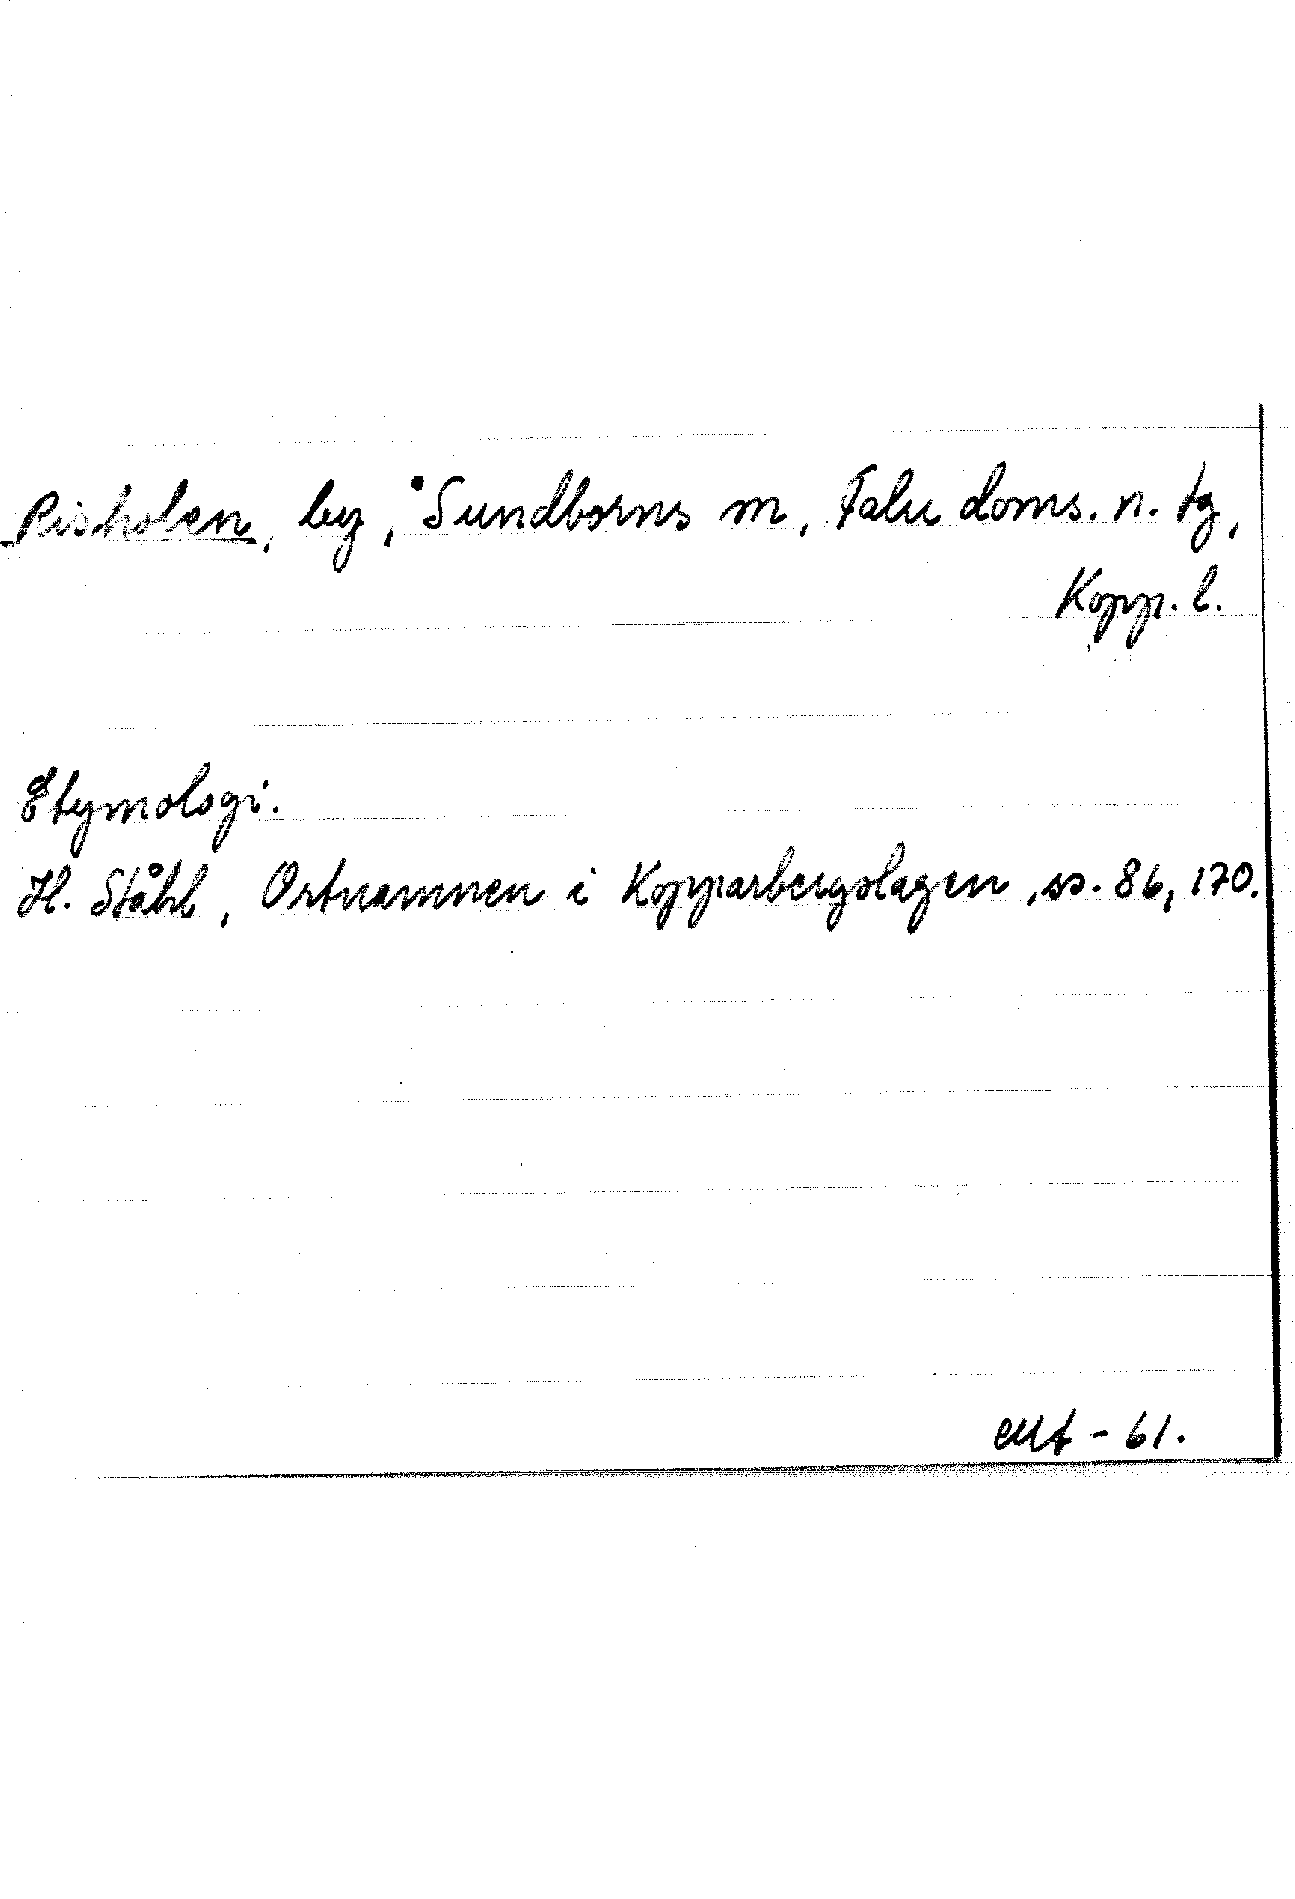 Risholen, by, Sundborns sn, Falu doms. n. tg,
Kopp. l.
Etymologi.
H. Ståhl, Ortnamnen i Kopparbergslagen, ss. 86, 170.
- 61.